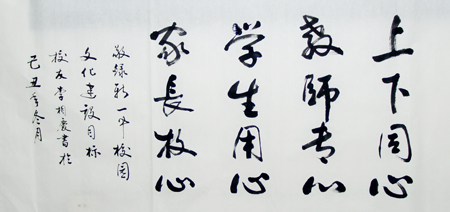 上下同心
教師专心
学生用心
家長放心
敬録新一中校园
文化建设目标
校友李相書於
己丑年冬月